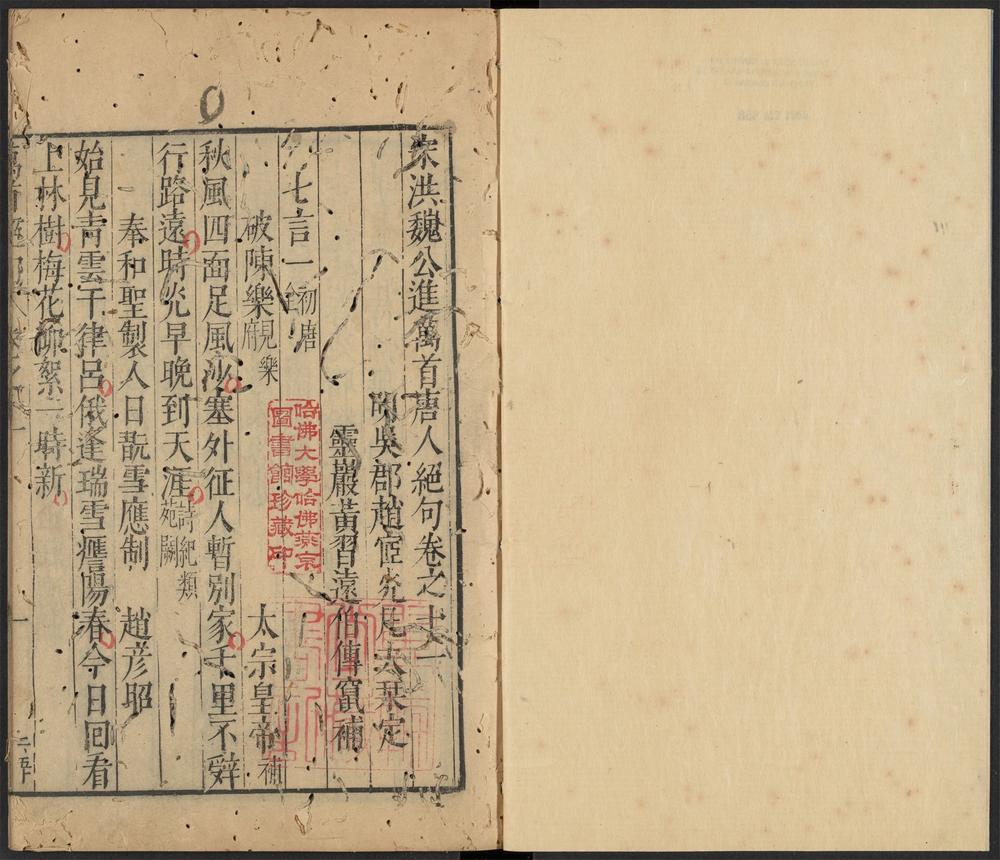 宋洪魏公進萬首唐人絕句卷之十一
明吳郡趙宧光凡夫栞定
靈巖黃習遠伯傳竄補
七言一 初唐
破陳樂 見樂府 太宗皇帝 補
秋風四面足風沙塞外征人暫別家千里不辭
行路遠時光早晚到天涯 詩紀類苑闕
奉和聖製人日翫雪應制 趙彥昭
始見青雲干律呂俄逢瑞雪應陽春今日回看
上林樹梅花柳絮一時新
哈佛大學哈佛燕京
圖書館珍藏印